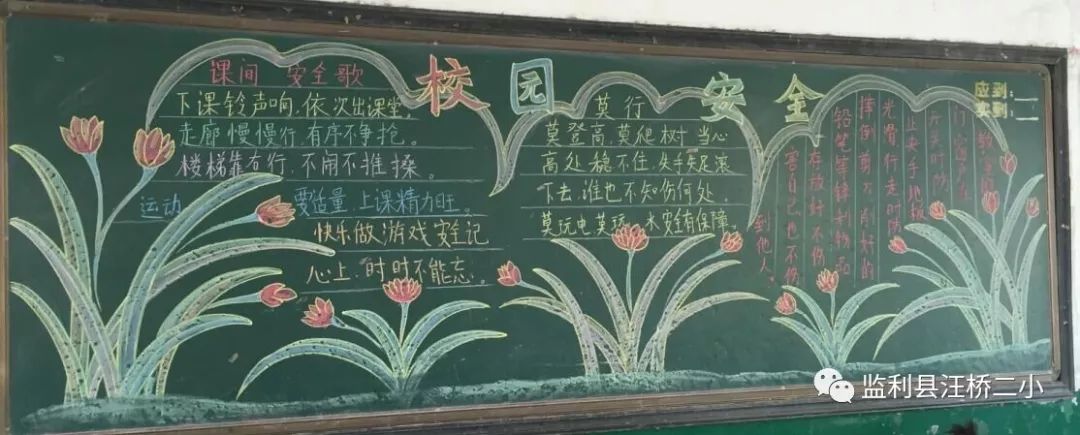 校园安全
课间 安全歌
下课铃声响,依次出课堂。
走廊慢慢行,有序不争抢。
楼梯靠右行,不闹不推搡。
运动 要适量,上课精力旺。
快乐做游戏安全记
心上,时时不能忘。
莫行
莫登高莫爬树 当心
高处稳不住,失手失足滚
下去,谁也不知伤何处,
莫玩电莫玩水安全有保障。
应到:
实到:
教室的
门窗
开关时
止夹手,地板
光滑,行走时防
摔倒剪刀削好的
铅笔等锋利物品
存放好不伤
害自己,也不伤
到他人。
监利县汪桥二小